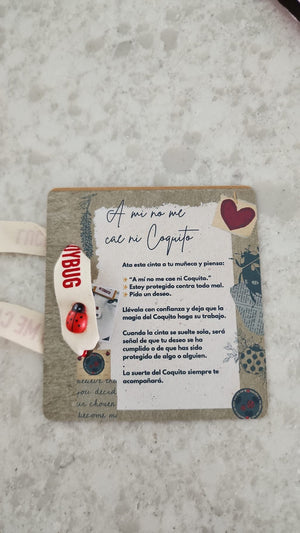 A mi no me
cae ni Coquito
Ata este cinta a tu muñeca y piensa:
✨"A mí no me cae ni Coquito."
✨Estoy protegido contra todo mal.
✨Pido un deseo.
Llévala con confianza y deja que la
magia del Coquito haga su trabajo.
Cuando la cinta se suelte sola, será
señal de que tu deseo se ha
cumplido o de que has sido
protegido de algo o alguien.
.
La suerte del Coquito siempre te
acompañará.
YBUG
you decid
become